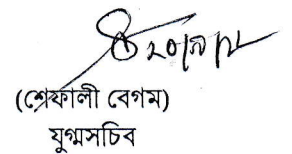 (শেফালী বেগম)
যুগ্মসচিব